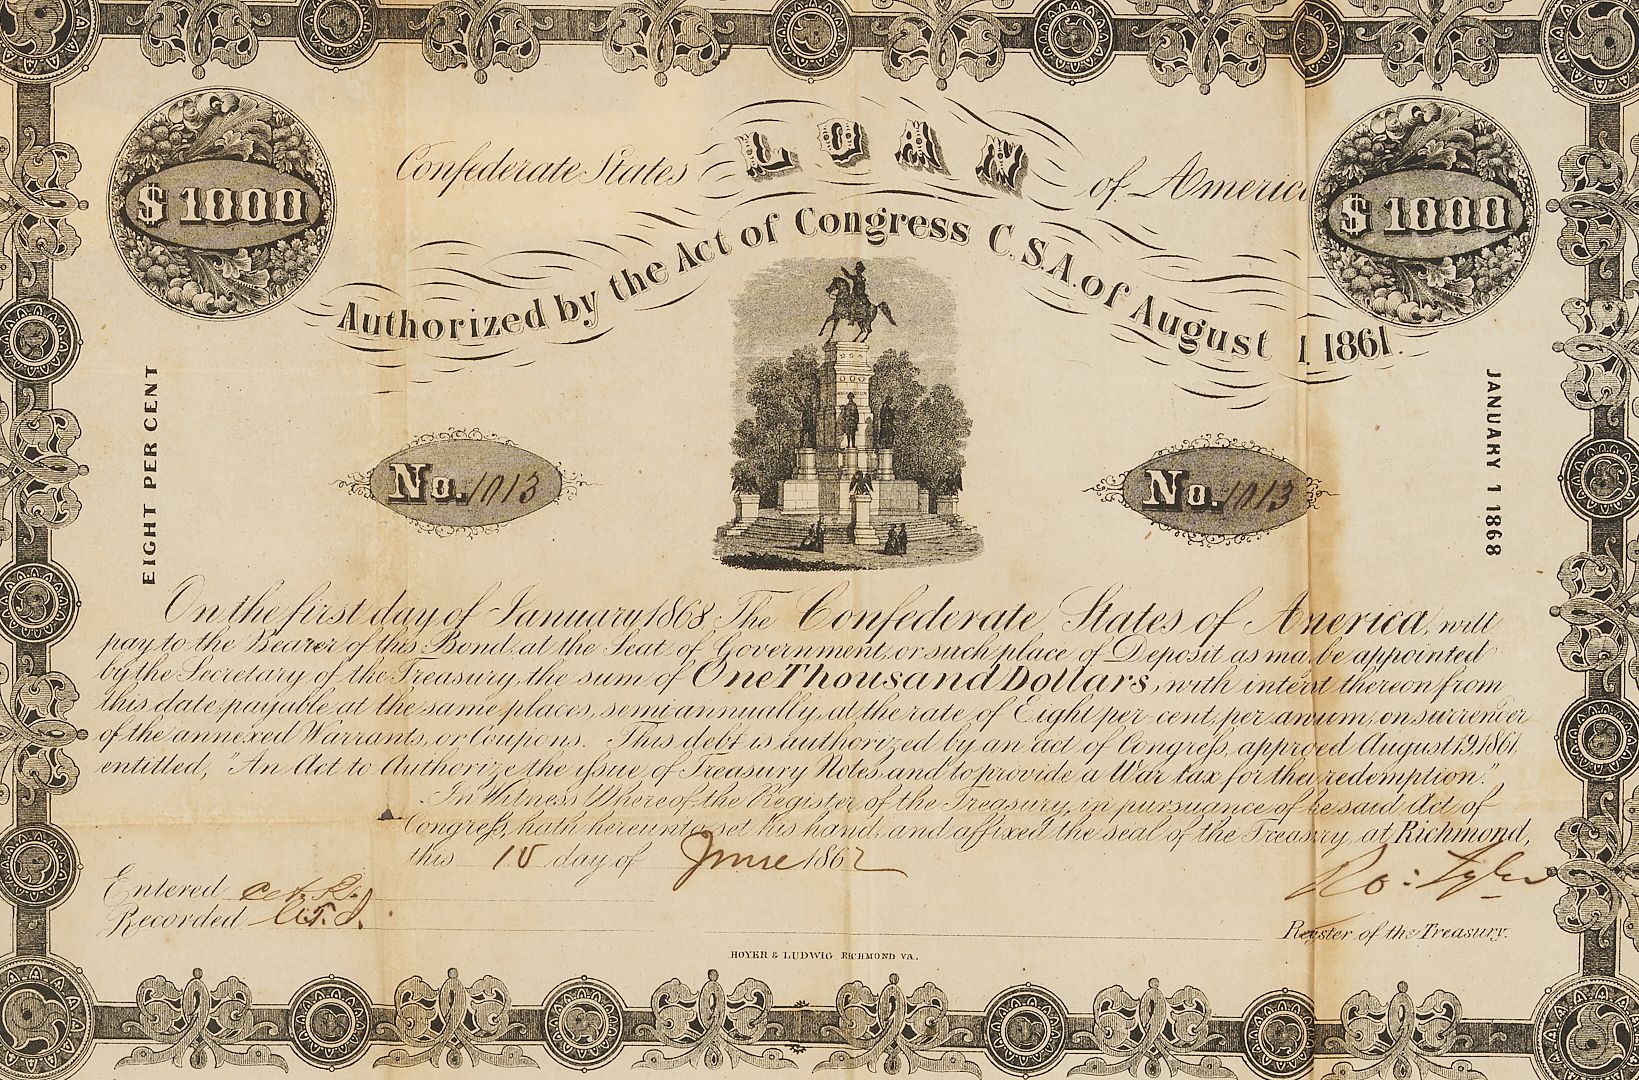 Confederate States LOAN of America
$1000
$1000
Authorized by the Act of Congress C.S.A. of August 1, 1861.
EIGHT PER CENT
JANUARY 1 1868
No. 1013
No. 1013
On the first day of January 1868 The Confederate States of America, will
pay to the Bearer of this Bond, at the Seat of Government, or such place of Deposit as ma be appointed
by the Secretary of the Treasury, the sum of One Thousand Dollars, with interst thereon from
this date, payable at the same places, semi-annually, at the rate of Eight per-cent, per annum, on surrender
of the annexed Warrants, or Coupons. This debt is authorized by an act of Congress, approved August 19, 1861,
entitled, "An Act to Authorize the issue of Treasury Notes, and to provide a War tax for their redemption."
In Witness Whereof the Register of the Treasury, in pursuance of he said Act of
Congress, hath hereunto set his hand, and affixed the seal of the Treasury, at Richmond,
this 10 day of June 1862
Entered
Recorded
Ro: Tyler
Register of the Treasury.
HOYER & LUDWIG RICHMOND VA.